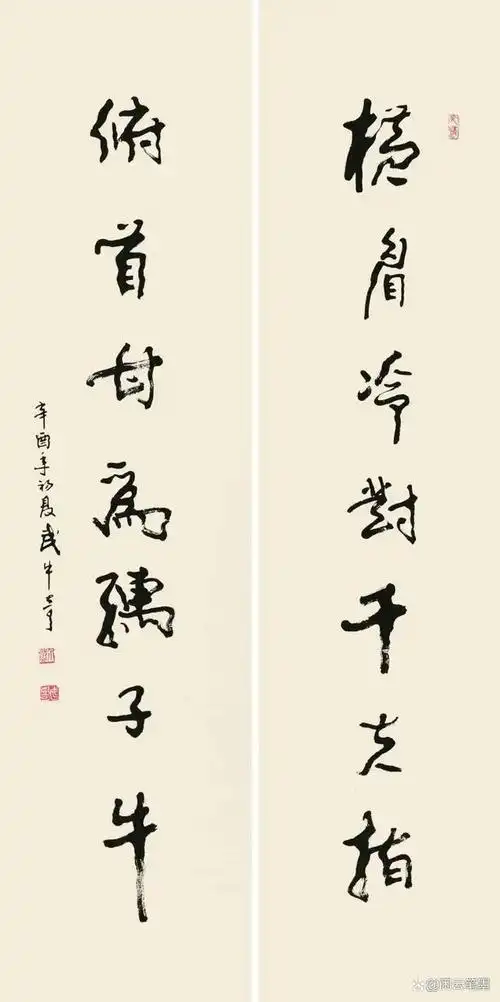 橫眉冷對千夫指
俯首甘爲孺子牛
辛酉年初夏武中奇
@闲云笔墨